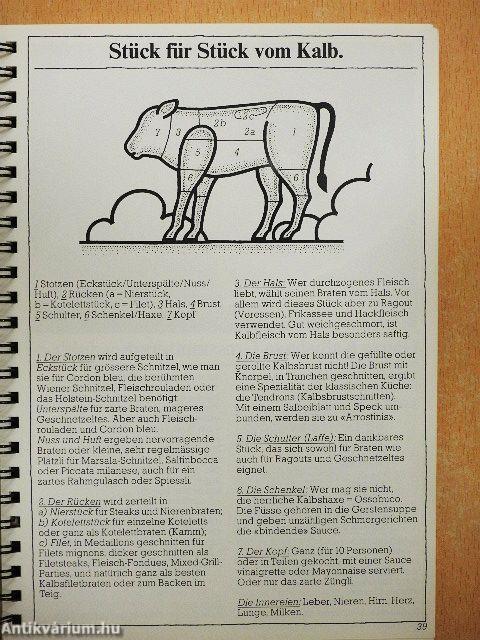 Stück für Stück vom Kalb.
7
3
2b
2c
2a
1
5
4
6
6
1 Stotzen (Eckstück/Unterspälte/Nuss/
Huft), 2 Rücken (a = Nierstück,
b = Kotelettstück, c = Filet), 3 Hals, 4 Brust,
5 Schulter, 6 Schenkel/Haxe, 7 Kopf
1. Der Stotzen wird aufgeteilt in
Eckstück für grössere Schnitzel, wie man
sie für Cordon bleu, die berühmten
Wiener Schnitzel, Fleischrouladen oder
das Holstein-Schnitzel benötigt.
Unterspälte für zarte Braten, mageres
Geschnetzeltes. Aber auch Fleisch-
rouladen und Cordon bleu.
Nuss und Huft ergeben hervorragende
Braten oder kleine, sehr regelmässige
Plätzli für Marsala-Schnitzel, Saltinbocca
oder Piccata milanese, auch für ein
zartes Rahmgulasch oder Spiessli.
2. Der Rücken wird zerteilt in
a) Nierstück für Steaks und Nierenbraten;
b) Kotelettstück für einzelne Koteletts
oder ganz als Kotelettbraten (Kamm);
c) Filet, in Medaillons geschnitten für
Filets mignons, dicker geschnitten als
Filetsteaks, Fleisch-Fondues, Mixed Grill-
Parties, und natürlich ganz als besten
Kalbsfiletbraten oder zum Backen im
Teig.
3. Der Hals: Wer durchzogenes Fleisch
liebt, wählt seinen Braten vom Hals. Vor
allem wird dieses Stück aber zu Ragout
(Voressen), Frikassee und Hackfleisch
verwendet. Gut weichgeschmort, ist
Kalbfleisch vom Hals besonders saftig.
4. Die Brust: Wer kennt die gefüllte oder
gerollte Kalbsbrust nicht! Die Brust mit
Knorpel, in Tranchen geschnitten, ergibt
eine Spezialität der klassischen Küche:
die Tendrons (Kalbsbrustschnitten).
Mit einem Salbeiblatt und Speck um-
bunden, werden sie zu «Arrostini».
5. Die Schulter (Laffe): Ein dankbares
Stück, das sich sowohl für Braten wie
auch für Ragouts und Geschnetzeltes
eignet.
6. Die Schenkel: Wer mag sie nicht,
die herrliche Kalbshaxe = Ossobuco.
Die Füsse gehören in die Gerstensuppe
und geben unzähligen Schmorgerichten
die «bindende» Sauce.
7. Der Kopf: Ganz (für 10 Personen)
oder in Teilen gekocht, mit einer Sauce
vinaigrette oder Mayonnaise serviert.
Oder nur das zarte Züngli.
Die Innereien: Leber, Nieren, Hirn, Herz,
Lunge, Milken.
39
Antikvárium.hu